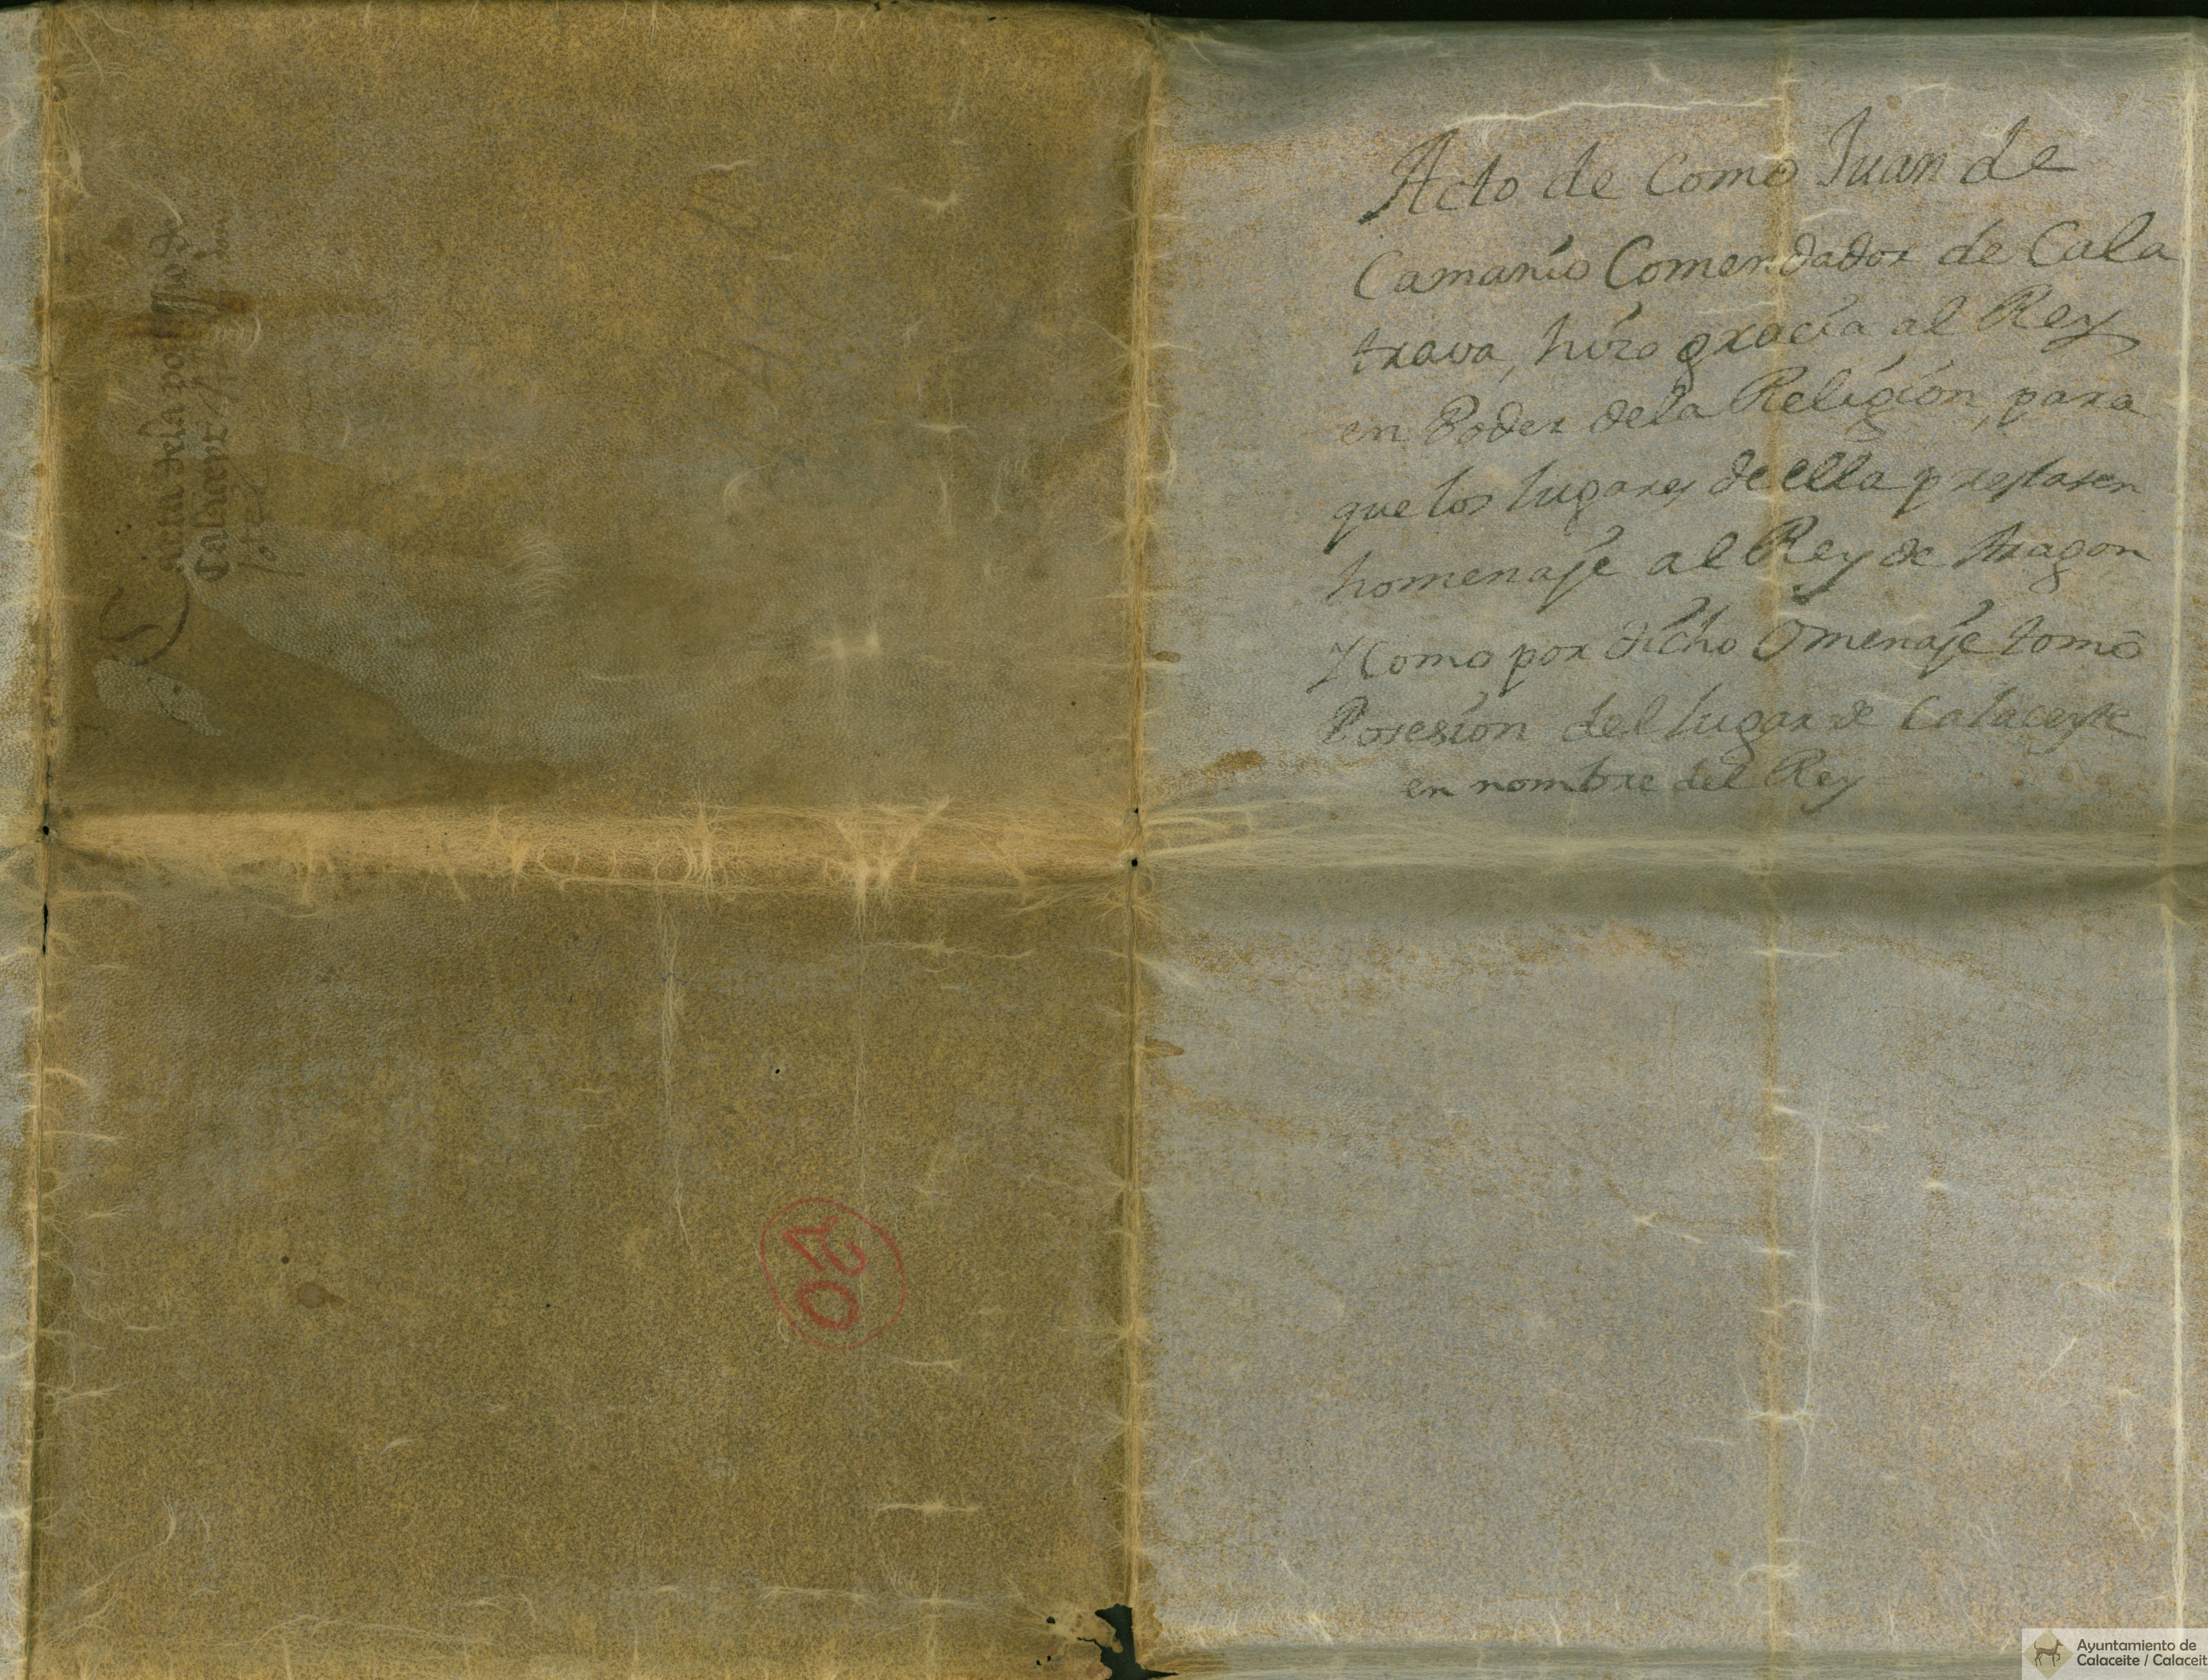 Carta dela
Calaceyt
Acto de Como Juan de
Camanio Comendador de Cala
trava, hizo gracia al Rey
en Poder dela Religion, para
que los lugares de ella prestasen
homenaje al Rey de Aragon
Y Como por dicho Omenaje tomô
Posesion del lugar de Calaceyte
en nombre del Rey
20
Ayuntamiento de
Calaceite / Calaceit